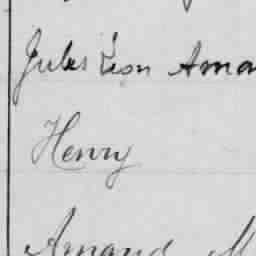 Jules Léon Aman
Henry
Amand M